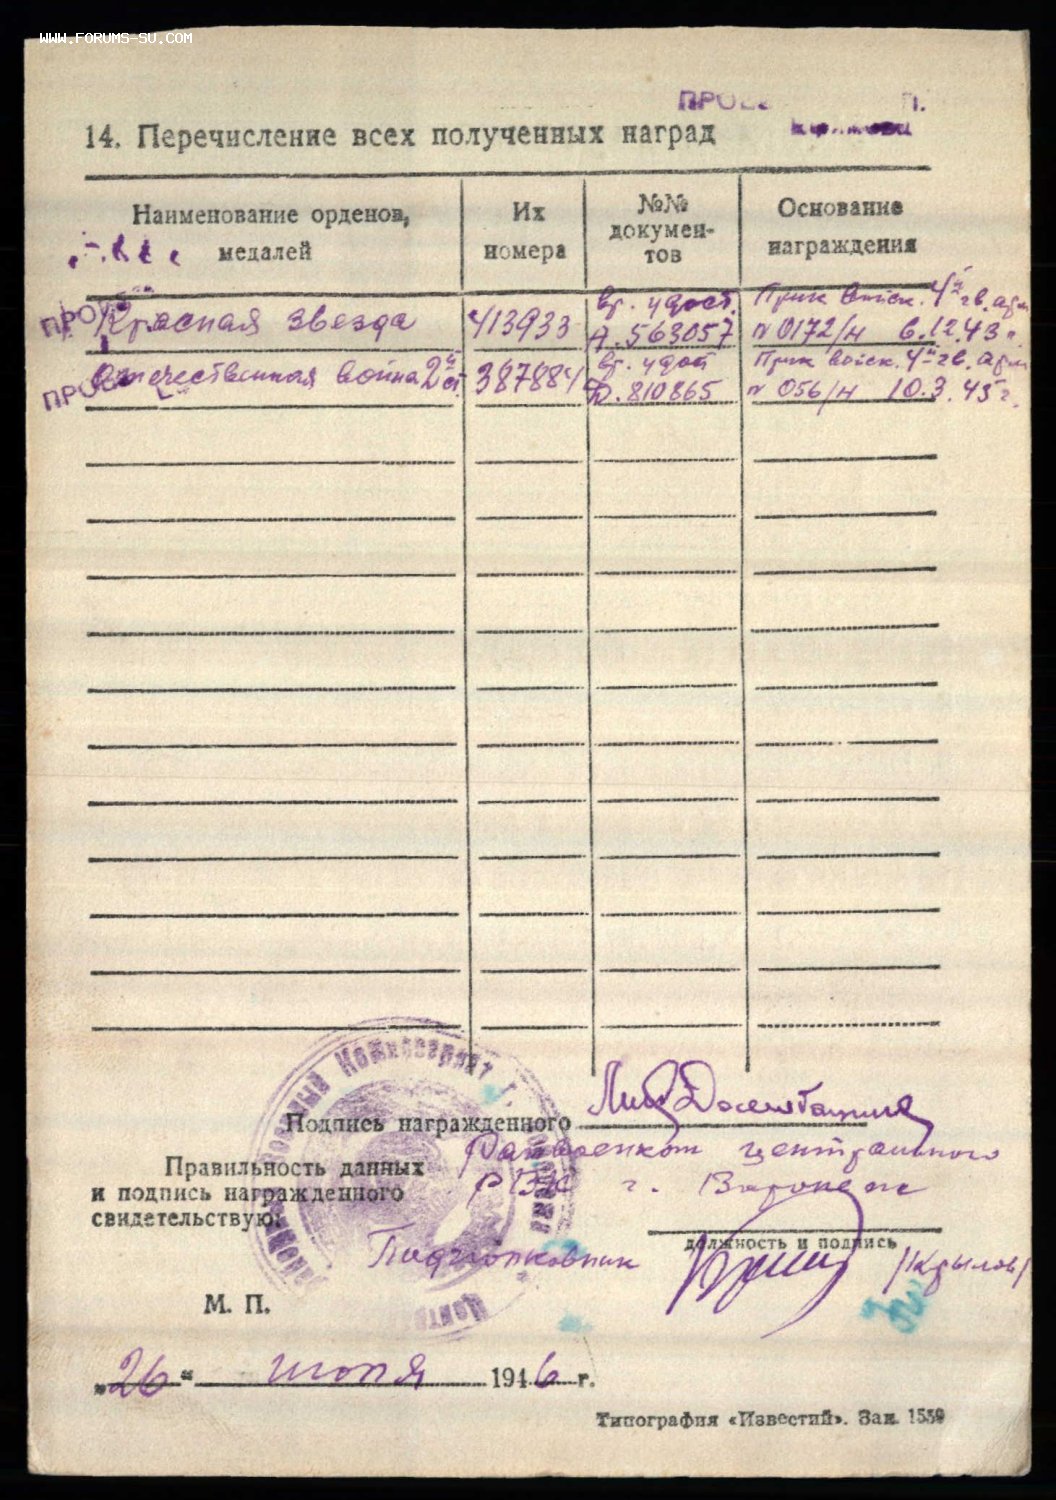 WWW.FORUMS-SU.COM
14. Перечисление всех полученных наград
Наименование орденов, медалей
Их номера
№№ докумен-тов
Основание награждения
Красная звезда 413933 вр. удост. А.563057 Прик войск. 4й гв. арм № 0172/н 6.12.43 г.
Отечественная война 2й ст. 387884 вр. удост Д.810865 Прик войск. 4й гв. арм № 056/н 10.3.45 г.
Подпись награжденного
Правильность данных
и подпись награжденного
свидетельствую:
Райвоенком центрального
РВК г. Воронеж
должность и подпись
Подполковник /Крылов/
М. П.
„26“ июля 1946 г.
Типография «Известий». Зак. 1539